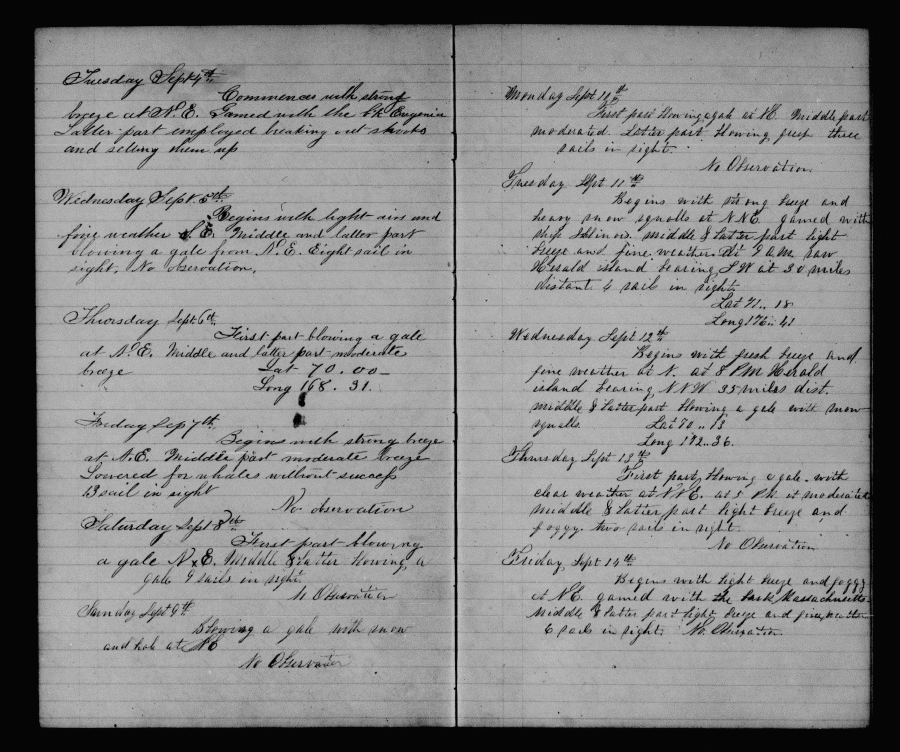 Tuesday Sept 4th
Commences with strong
breeze at N. E. Gamed with the bk Eugenia
Latter part employed breaking out shooks
and setting them up
Wednesday Sept. 5th
Begins with light airs and
fine weather S. E. Middle and latter part
blowing a gale from N. E. Eight sail in
sight. No observation.
Thursday Sept 6th
First part blowing a gale
at N. E. Middle and latter part moderate
breeze Lat 70.00
Long 168.31.
Friday Sep 7th
Begins with strong breeze
at N. E. Middle part moderate breeze
Lowered for whales without success
13 sail in sight
No observation
Saturday Sept 8th
First part blowing
a gale N. E. Middle & latter blowing a
gale 9 sails in sight.
No Observation
Sunday Sept 9th
Blowing a gale with snow
and at NE
No Observation
Monday Sept 10th
First part blowing a gale at NE Middle part
moderated. Latter part blowing fresh three
sails in sight.
No Observation
Tuesday Sept 11th
Begins with strong breeze and
heavy snow squalls at NNE gamed with
ship Illinois. middle & latter part light
breeze and fine weather. At 9 A.M. saw
Herald island bearing SW at 30 miles
distant 4 sail in sight
Lat 71..18
Long 176..41
Wednesday Sept 12th
Begins with fresh breeze and
fine weather at N. at 8 PM Herald
island bearing NNW 35 miles dist.
middle & latter part blowing a gale with snow
squalls. Lat 70..13
Long 172..36.
Thursday Sept 13th
First part blowing a gale with
clear weather at NNE. at 5 PM it moderated
middle & latter part light breeze and
foggy. two sails in sight.
No Observation
Friday Sept 14th
Begins with light breeze and foggy
at NE gamed with the bark Massachusetts
middle & latter part light breeze and fine weather
6 sails in sight. No Observation.